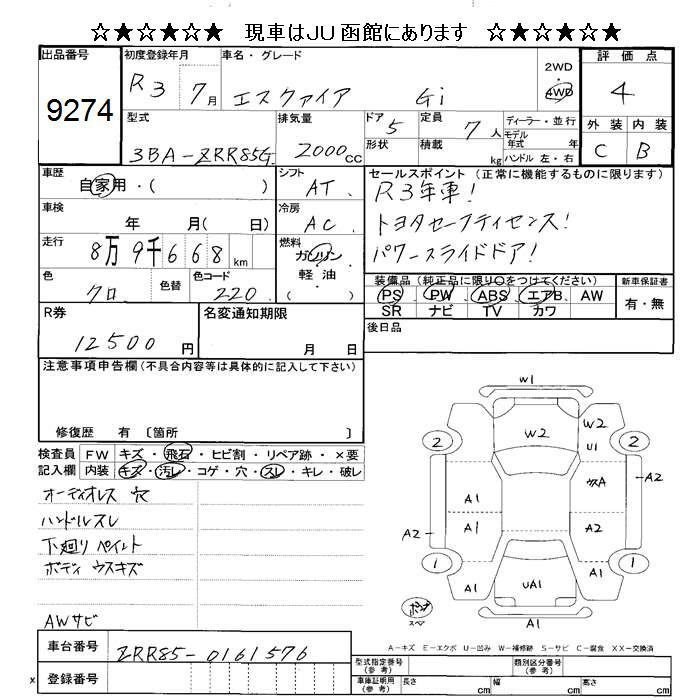 ☆★☆★☆ 現車はJU函館にあります ☆★☆★☆
出品番号
9274
初度登録年月
R3 7月
車名・グレード
エスクァイア Gi
2WD
4WD
評価点
4
外装 内装
C B
型式
3BA-ZRR85G
排気量
2000cc
ドア
5
形状
定員
7人
積載
kg
ディーラー・並行
モデル
年式 年
ハンドル 左・右
車歴
自家用・( )
シフト
AT
車検
年 月( 日)
冷房
AC
走行
8万9千668km
燃料
ガソリン
軽油
( )
色
クロ
色替
色コード
220
セールスポイント(正常に機能するものに限ります)
R3年車!
トヨタセーフティセンス!
パワースライドドア!
装備品(純正品に限り○をつけてください)
PS PW ABS エアB AW
SR ナビ TV カワ
新車保証書
有・無
R券
12500円
名変通知期限
月 日
後日品
注意事項申告欄(不具合内容等は具体的に記入して下さい)
修復歴 有〔箇所 〕
検査員
記入欄
FW キズ・飛石・ヒビ割・リペア跡・×要
内装 キズ・汚レ・コゲ・穴・スレ・キレ・破レ
オーディオレス 穴
ハンドルスレ
下廻り ペイント
ボディ ウスキズ
AWサビ
W1
W2
W2
2
U1
2
A1
A2
A1
A2
A2
1
1
A1
UA1
A1
A1
スペア
A-キズ E-エクボ U-凹み W-補修跡 S-サビ C-腐食 XX-交換済
車台番号
ZRR85-0161576
x 登録番号
型式指定番号
(参考)
類別区分番号
(参考)
車庫証明用
(参考)
長さ cm 幅 cm 高さ cm